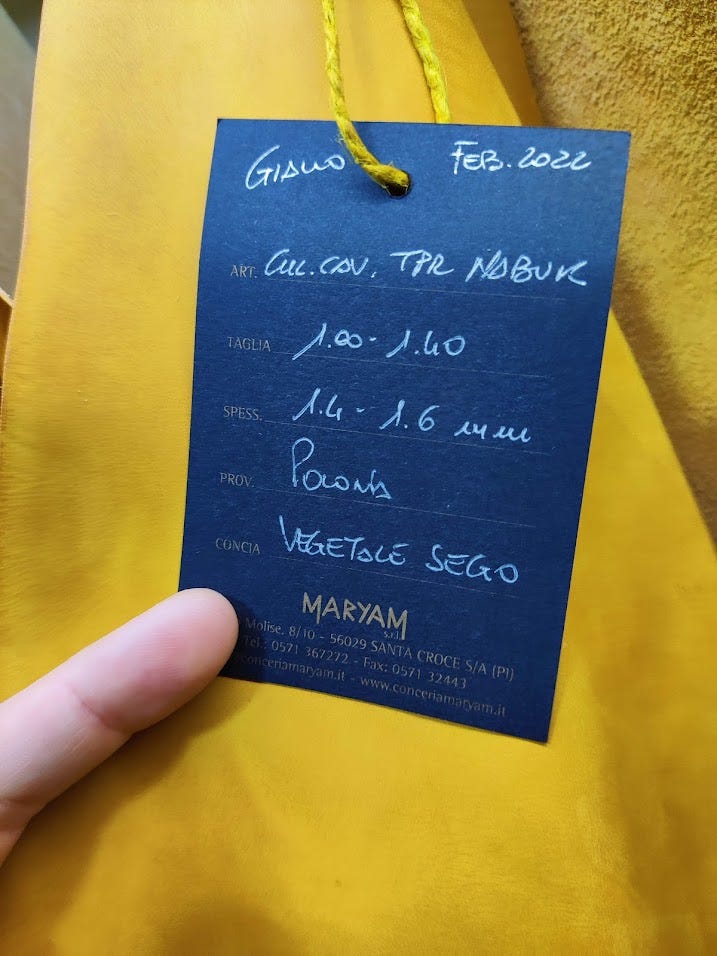 GIALLO FEB. 2022
ART. CUL. CAV. TPR NABUK
TAGLIA 1.00 - 1.40
SPESS. 1.4 - 1.6 mm
PROV. POLONIA
CONCIA VEGETALE SEGO
MARYAM
s.r.l.
Molise, 8/10 - 56029 SANTA CROCE S/A (PI)
Tel.: 0571 367272 - Fax: 0571 32443
conceriamaryam.it - www.conceriamaryam.it